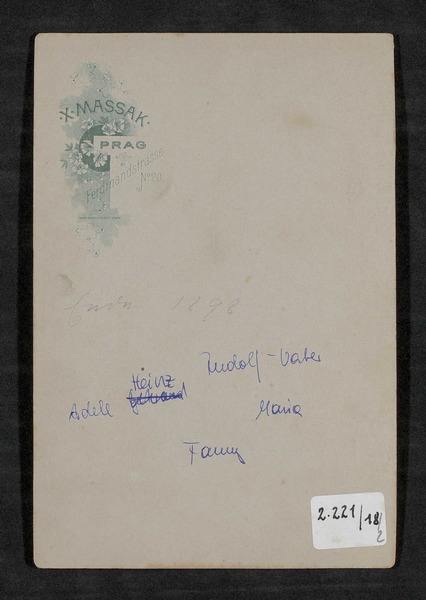 X. MASSAK.
PRAG
Ferdinandstrasse
No 20.
1898
Rudolf - Vater
Heinz
Adele
Maria
Fanny
2.221/18/2